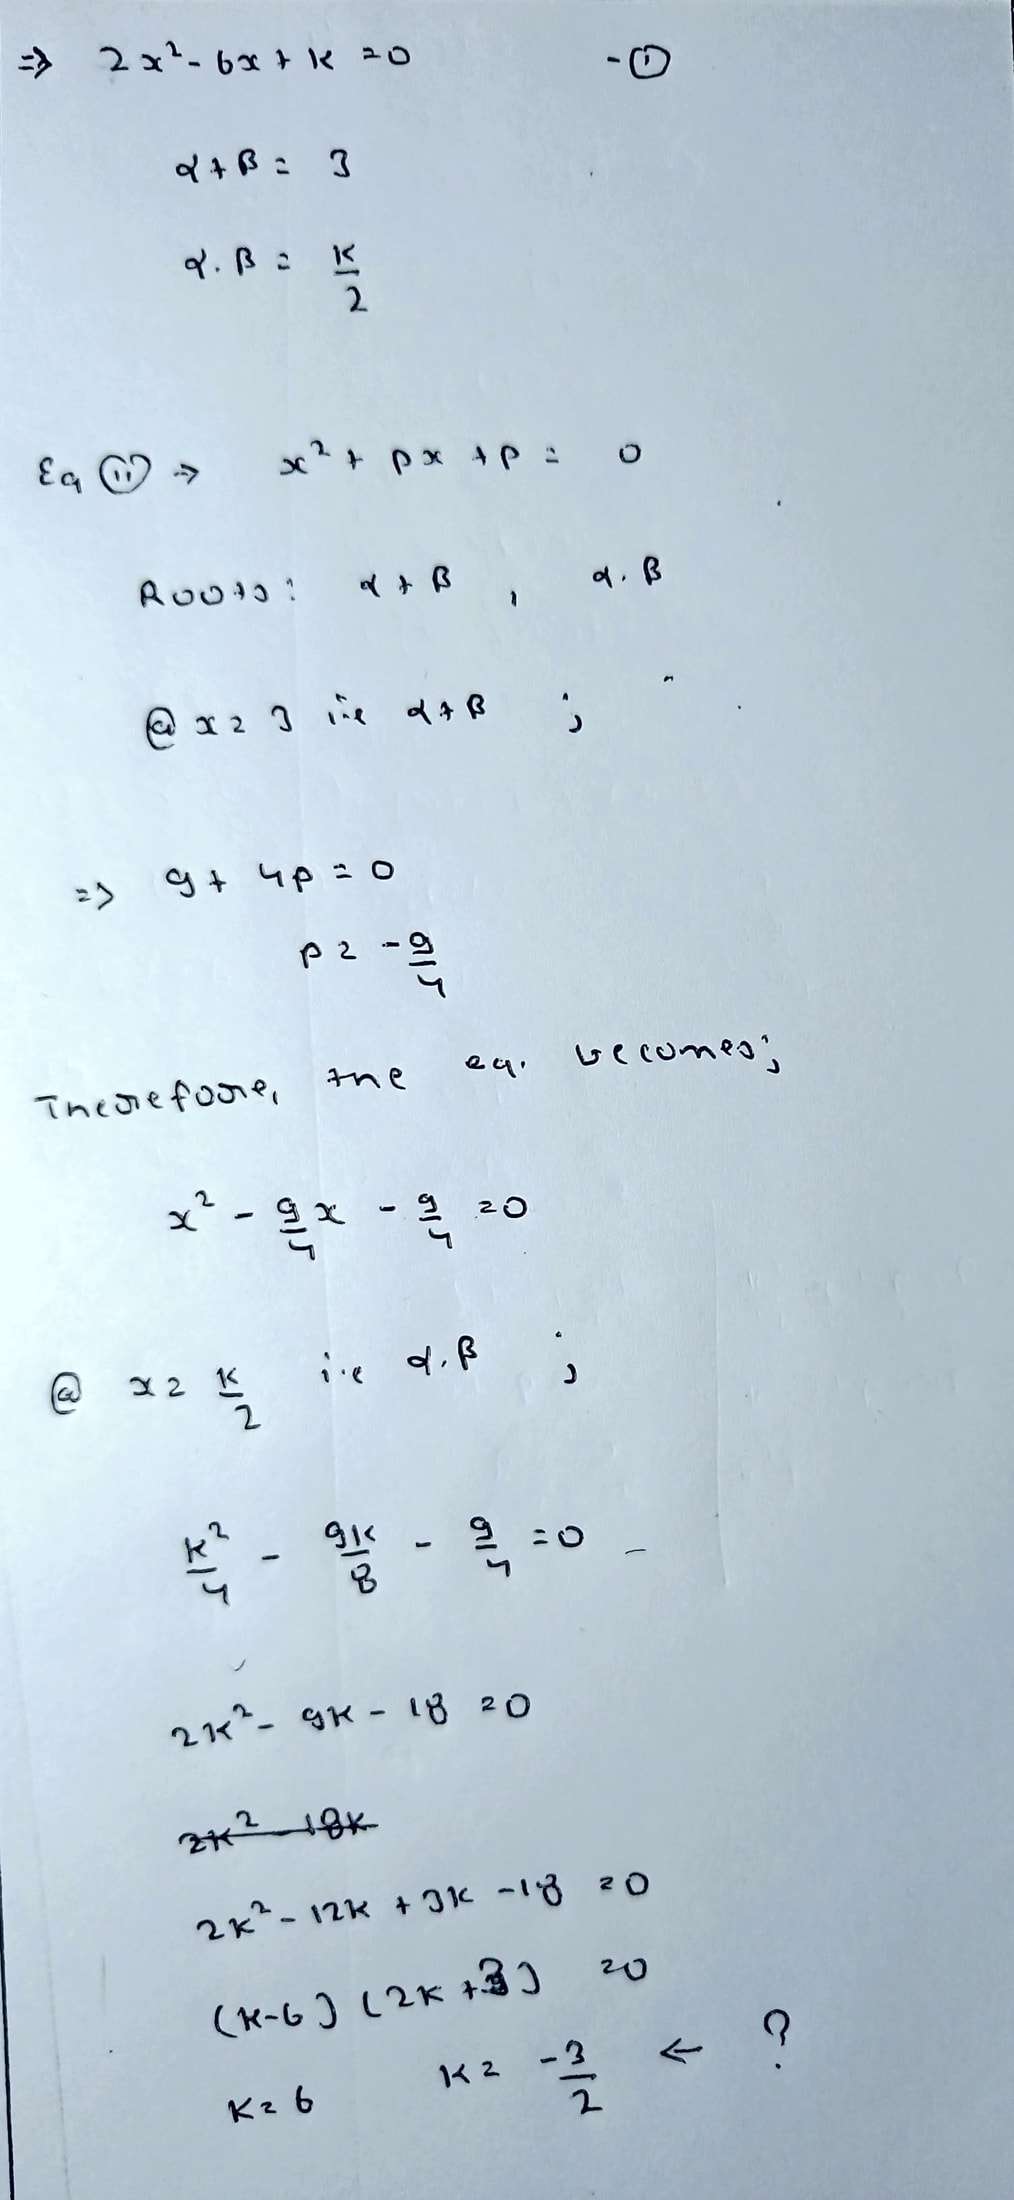 ⇒ 2x² - 6x + k = 0 - ①
α + β = 3
α . β = k/2
Eq ⑪ ⇒ x² + px + p = 0
Roots : α + β , α . β
@ x = 3 i.e α + β ;
⇒ 9 + 4p = 0
p = -9/4
Therefore, the eq. becomes;
x² - 9/4 x - 9/4 = 0
@ x = k/2 i.e α . β ;
k²/4 - 9k/8 - 9/4 = 0
2k² - 9k - 18 = 0
2k² - 18k
2k² - 12k + 3k - 18 = 0
(k-6) (2k + 3) = 0
k = 6 k = -3/2 ← ?